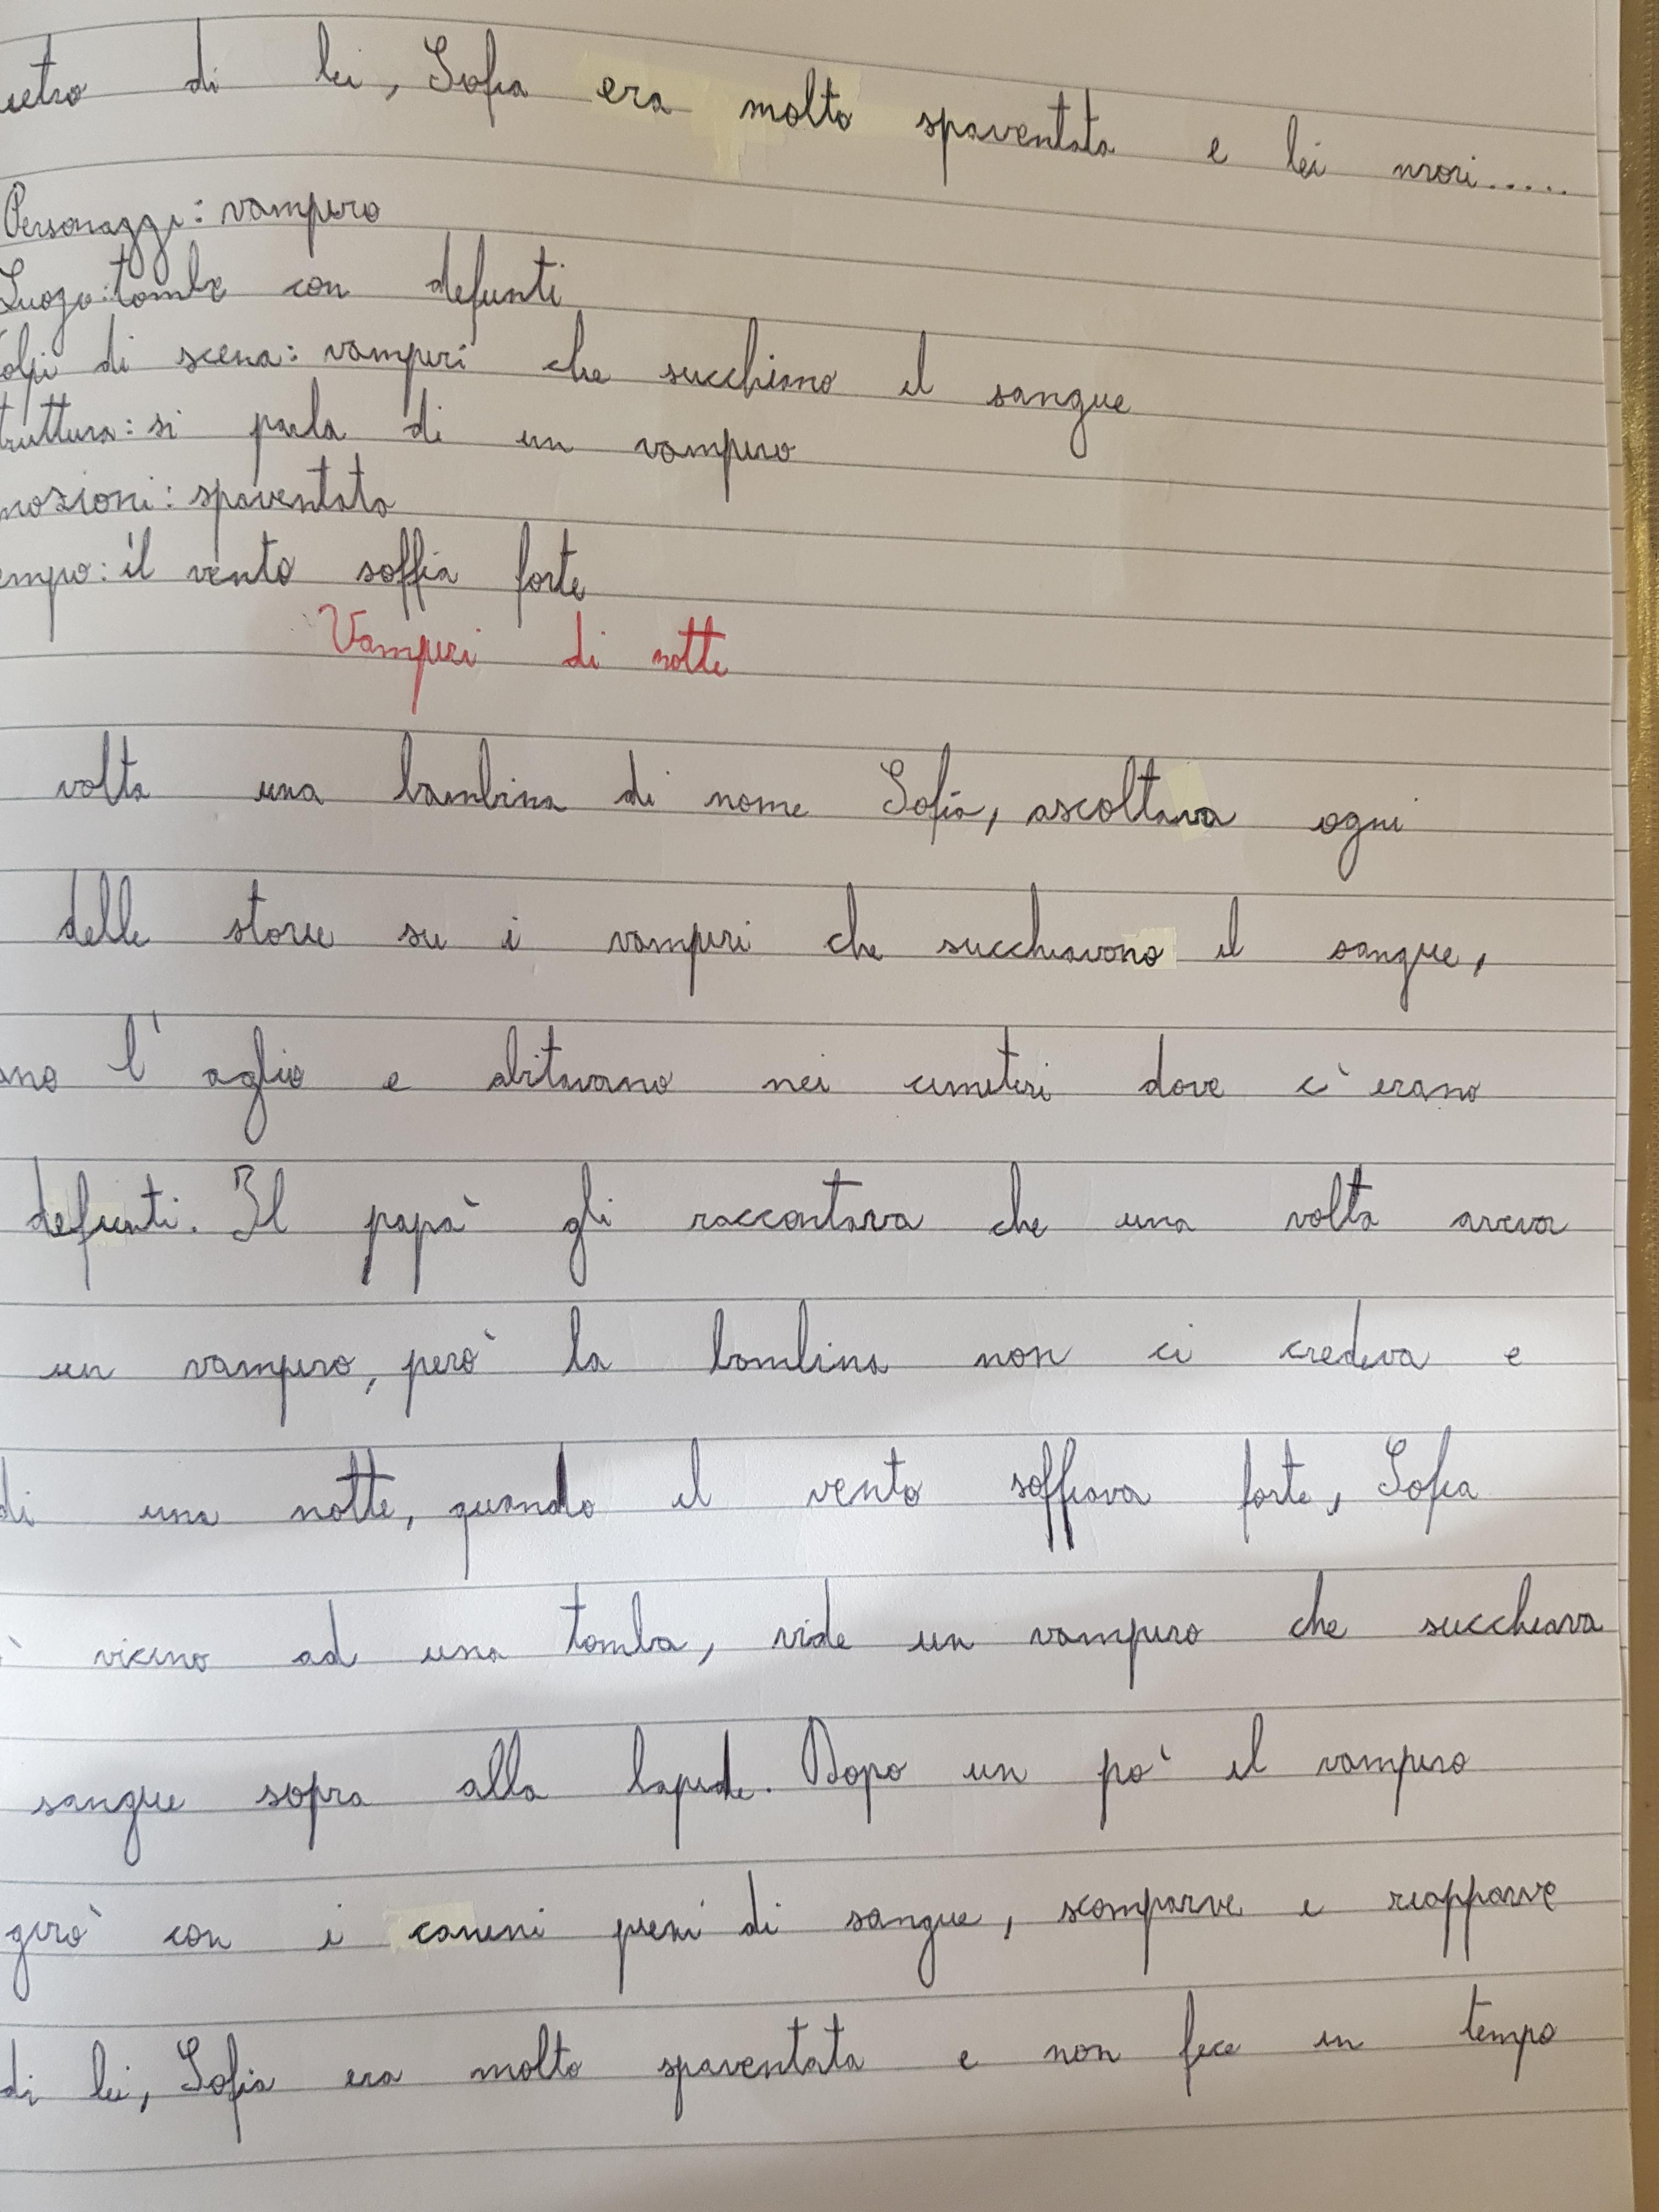 ietro di lei, Sofia era molto spaventata e lei morì.....
Personaggi: vampiro
Luogo: tombe con defunti
olpi di scena: vampiri che succhiano il sangue
truttura: si parla di un vampiro
mozioni: spaventata
empo: il vento soffia forte
Vampiri di notte
volta una bambina di nome Sofia, ascoltava ogni
delle storie su i vampiri che succhiavano il sangue,
ano l'aglio e abitavano nei cimiteri dove c'erano
defunti. Il papà gli raccontava che una volta aveva
un vampiro, però la bambina non ci credeva e
di una notte, quando il vento soffiava forte, Sofia
vicino ad una tomba, vide un vampiro che succhiava
sangue sopra alla lapide. Dopo un po' il vampiro
girò con i canini pieni di sangue, scomparve e riapparve
di lei, Sofia era molto spaventata e non fece in tempo